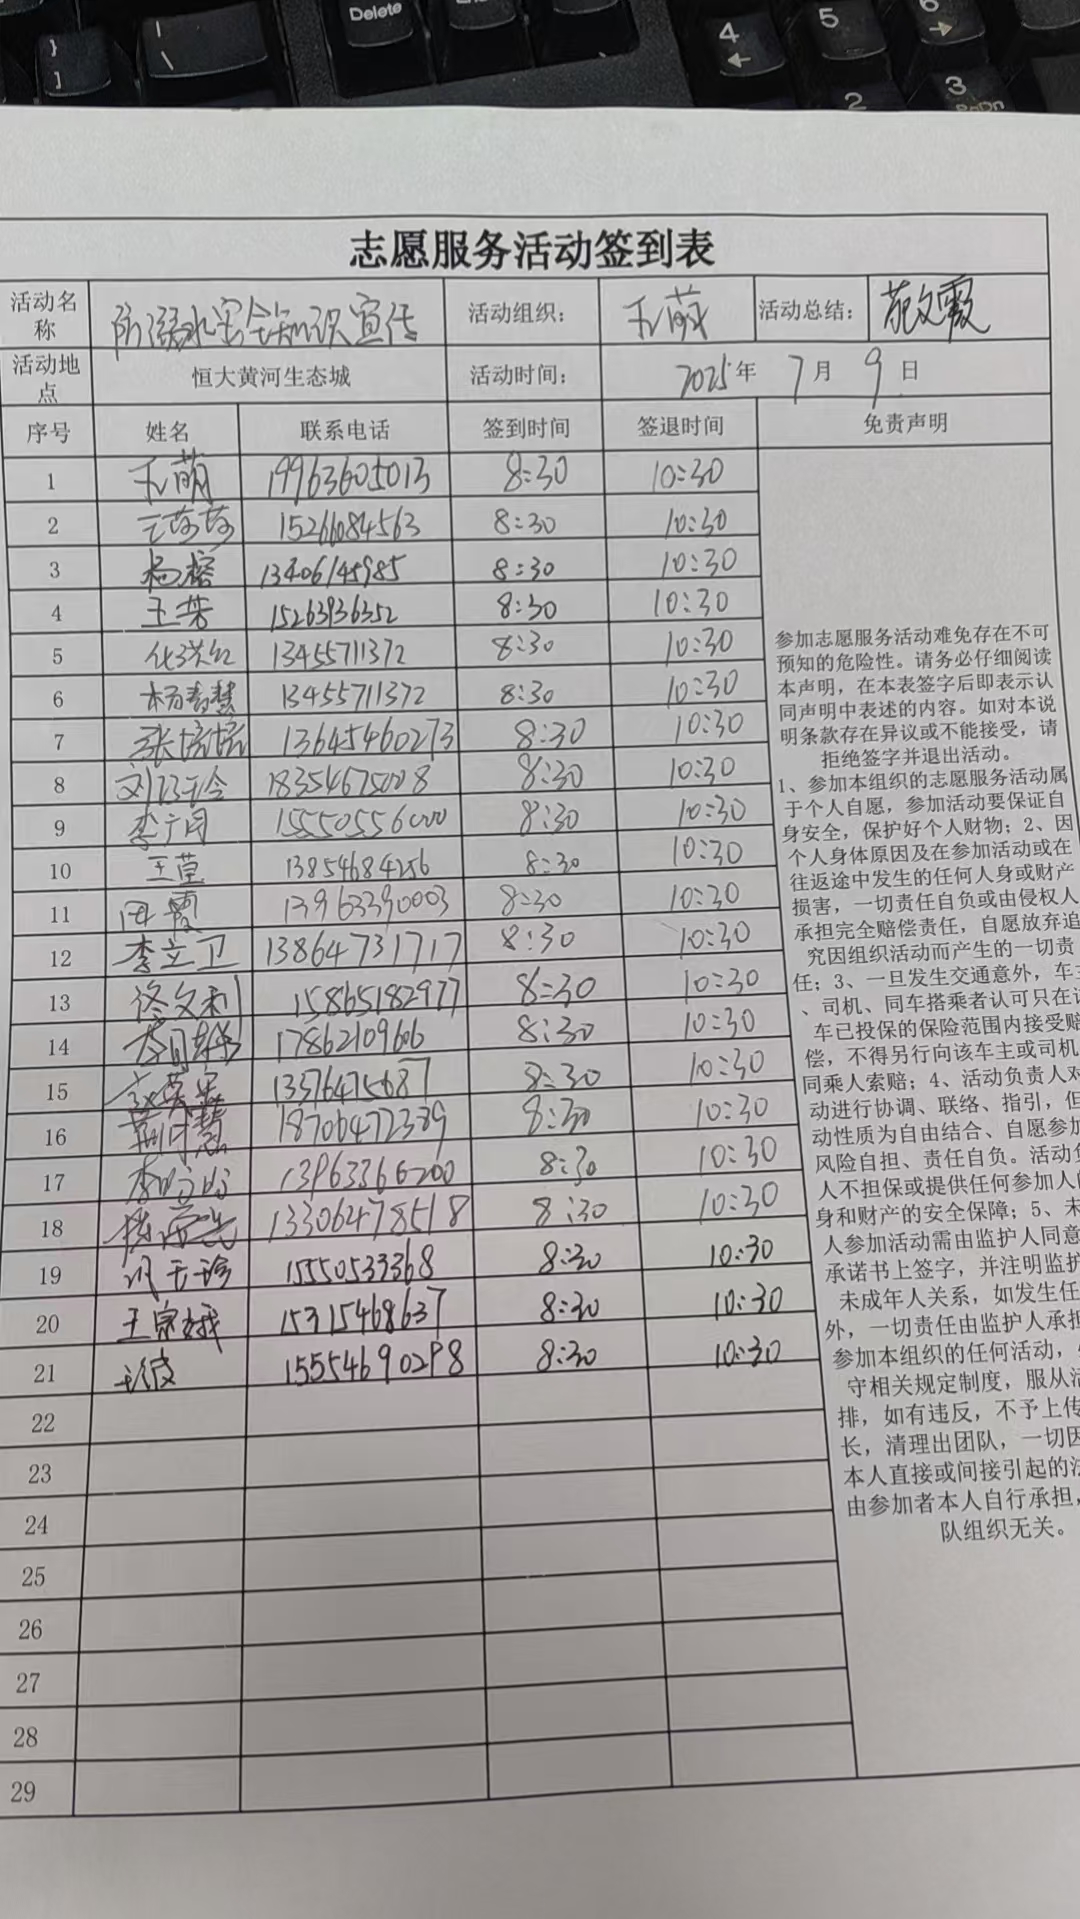 } ]
| \
Delete
4 ←
5
6 →
2
3 PgDn
志愿服务活动签到表
活动名称 防溺水安全知识宣传 活动组织： 活动总结： 范文霞
活动地点 恒大黄河生态城 活动时间： 2025年 7月 9日
序号 姓名 联系电话 签到时间 签退时间 免责声明
1 19963605013 8:30 10:30
2 王莎莎 15266084563 8:30 10:30
3 杨榕 13406145985 8:30 10:30
4 王芳 15263936352 8:30 10:30
5 13455711372 8:30 10:30
6 杨春慧 13455711372 8:30 10:30
7 张培培 13645460273 8:30 10:30
8 18354675008 8:30 10:30
9 李广同 15550556000 8:30 10:30
10 王萱 13854684256 8:30 10:30
11 田霞 13963390003 8:30 10:30
12 李立卫 13864731717 8:30 10:30
13 佟文利 15865182977 8:30 10:30
14 17862109606 8:30 10:30
15 13376475687 8:30 10:30
16 18706472389 8:30 10:30
17 13963366200 8:30 10:30
18 13306478518 8:30 10:30
19 15550533368 8:30 10:30
20 王宗娥 15315468637 8:30 10:30
21 15554690298 8:30 10:30
22
23
24
25
26
27
28
29
参加志愿服务活动难免存在不可
预知的危险性。请务必仔细阅读
本声明，在本表签字后即表示认
同声明中表述的内容。如对本说
明条款存在异议或不能接受，请
拒绝签字并退出活动。
1、参加本组织的志愿服务活动属
于个人自愿，参加活动要保证自
身安全，保护好个人财物；2、因
个人身体原因及在参加活动或在
往返途中发生的任何人身或财产
损害，一切责任自负或由侵权人
承担完全赔偿责任，自愿放弃追
究因组织活动而产生的一切责
任；3、一旦发生交通意外，车主
、司机、同车搭乘者认可只在该
车已投保的保险范围内接受赔
偿，不得另行向该车主或司机
同乘人索赔；4、活动负责人对
动进行协调、联络、指引，但
动性质为自由结合、自愿参加
风险自担、责任自负。活动负
人不担保或提供任何参加人的
身和财产的安全保障；5、未
人参加活动需由监护人同意
承诺书上签字，并注明监护
未成年人关系，如发生任
外，一切责任由监护人承担
参加本组织的任何活动，
守相关规定制度，服从活
排，如有违反，不予上传
长，清理出团队，一切因
本人直接或间接引起的法
由参加者本人自行承担，
队组织无关。